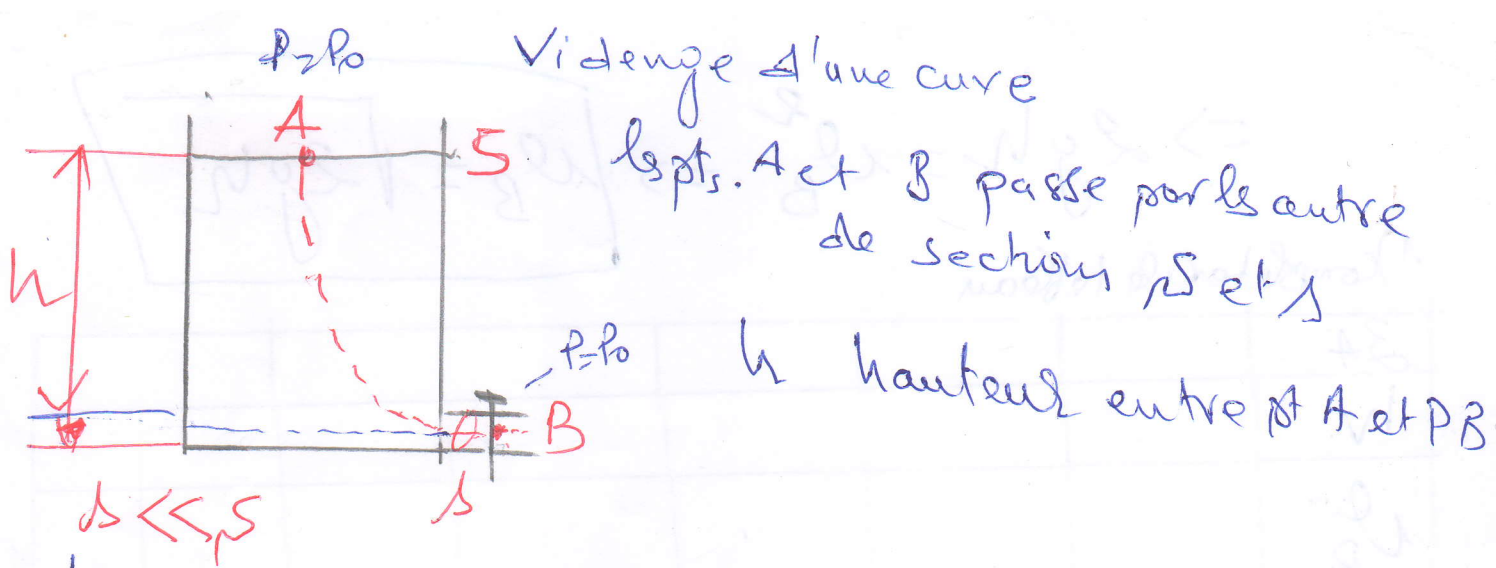 P=P₀ Videnge d'une cure
A
S
les pts. A et B passe par les centre
de sections S et s
h
P=P₀
h hauteur entre pt A et P B
B
s << S
s